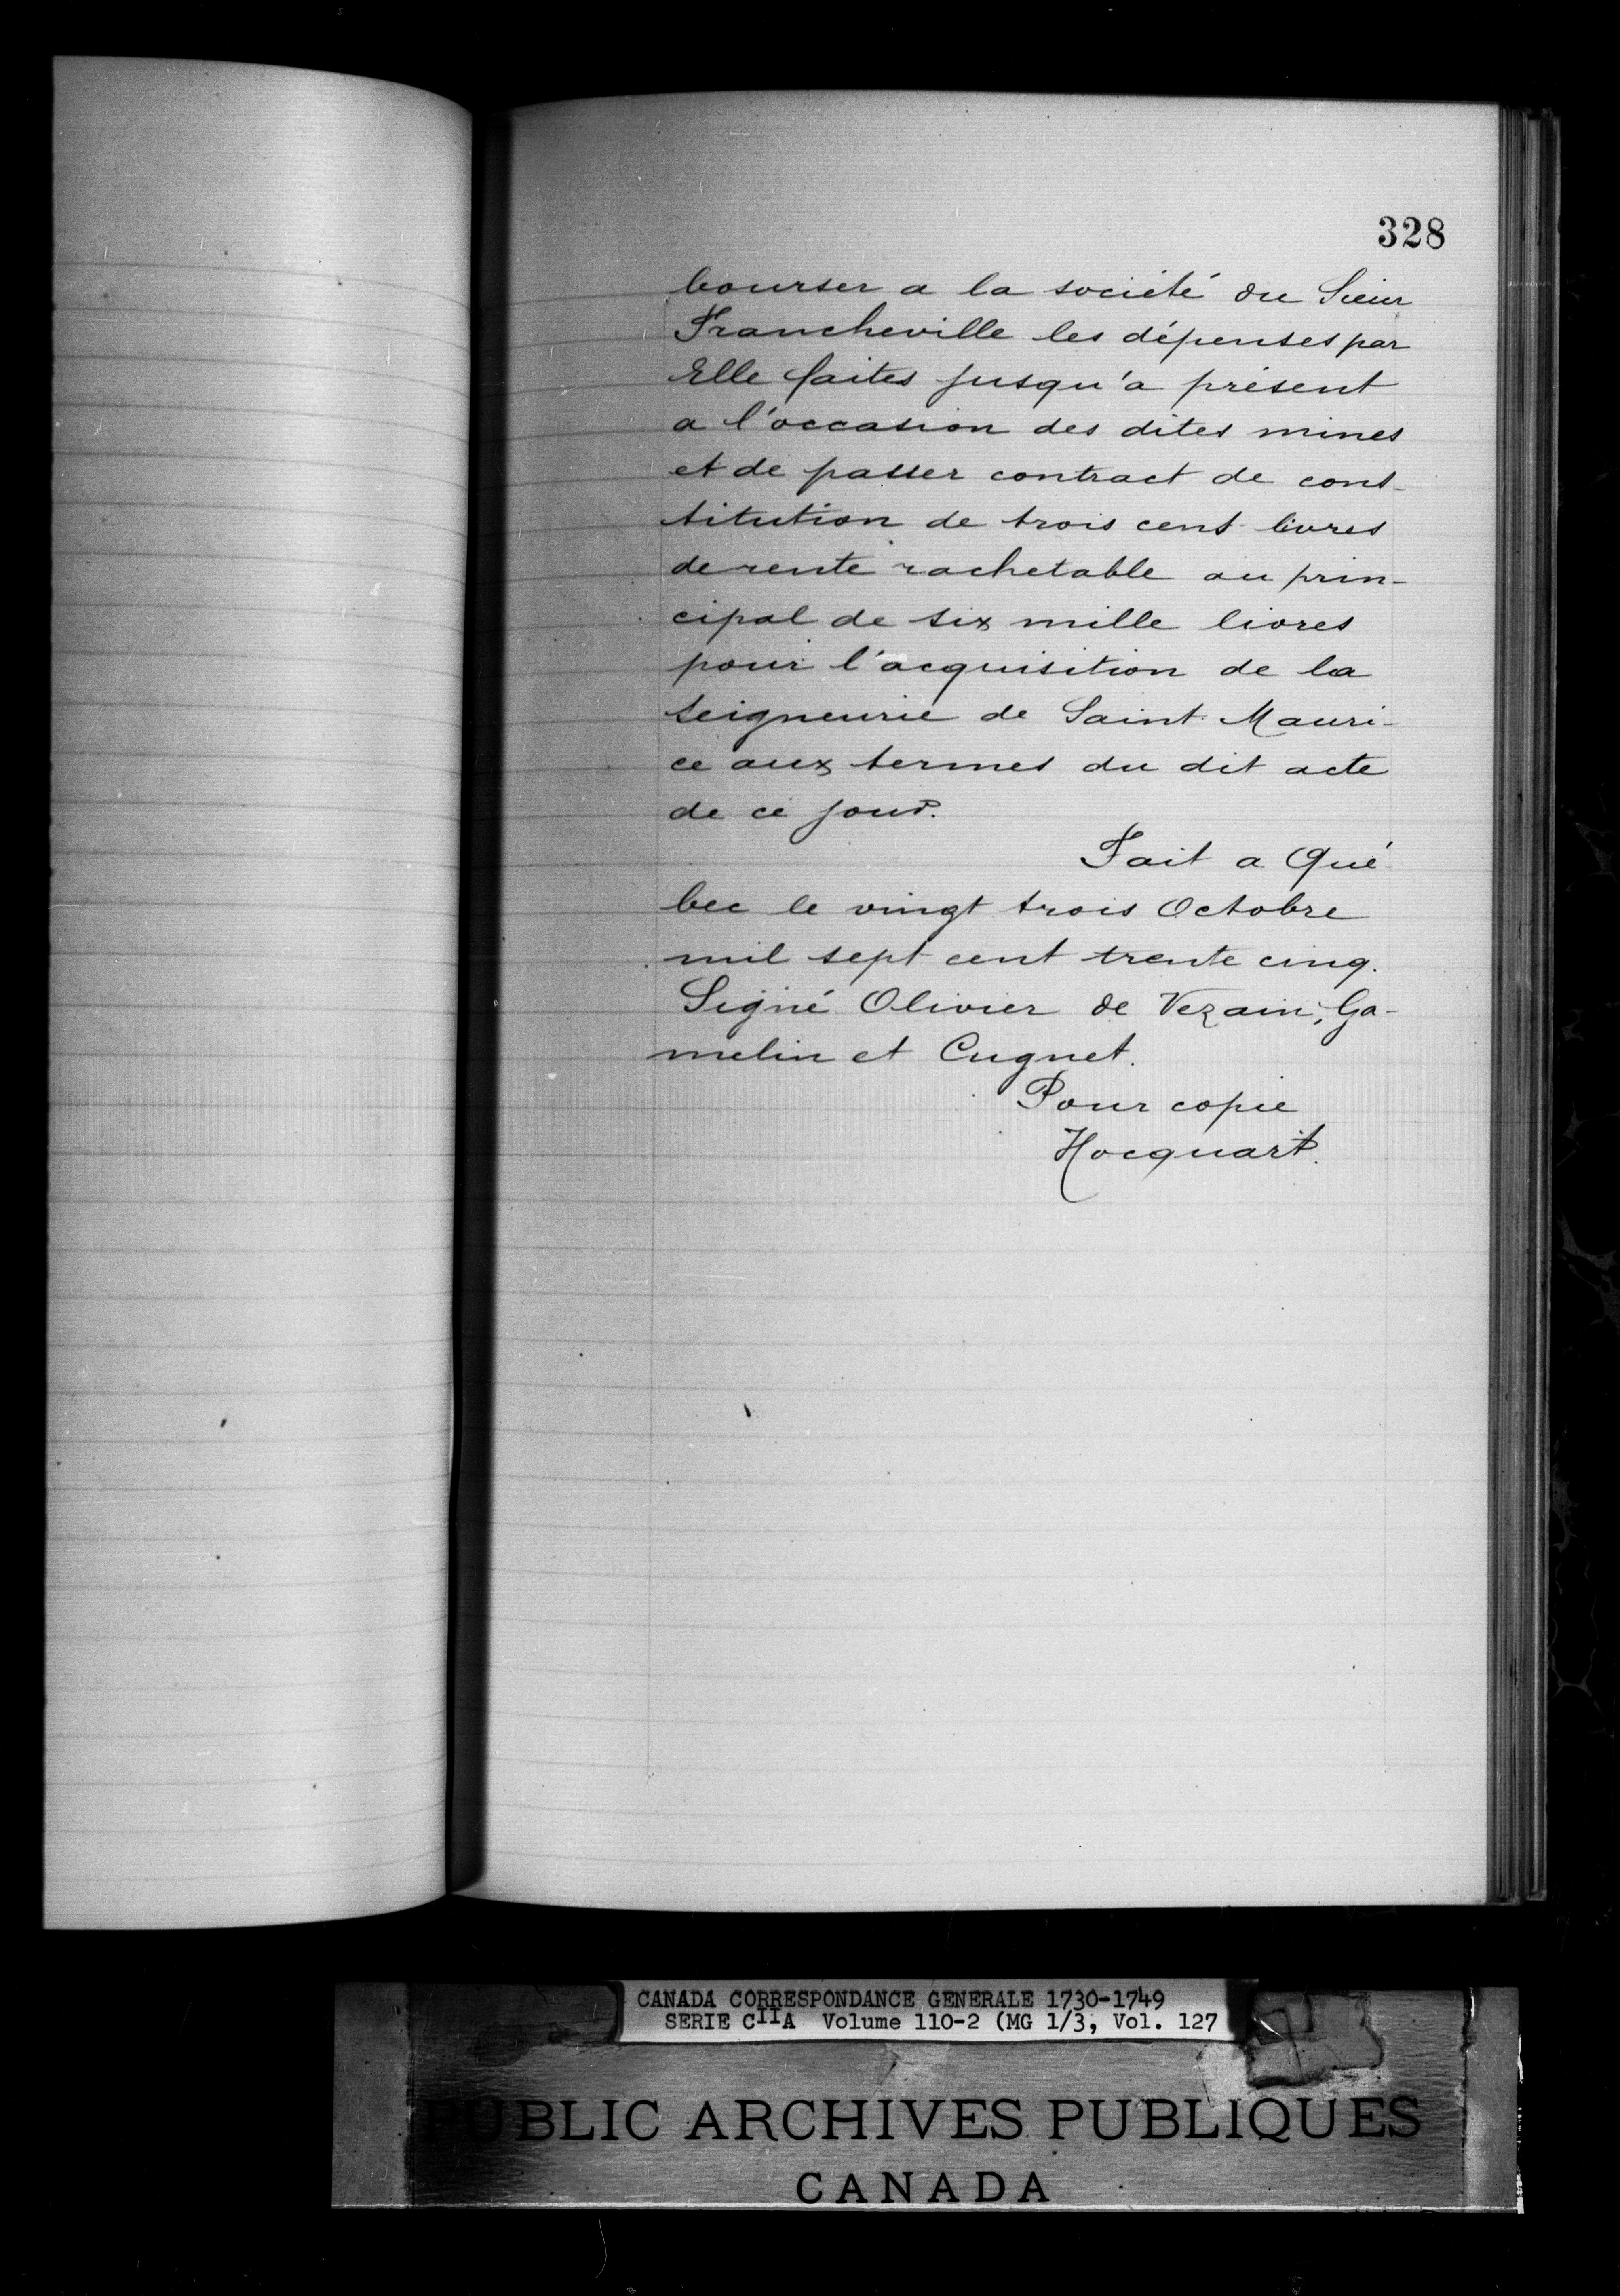 328
bourser a la société du Sieur
Francheville les dépenses par
Elle faites jusqu'a présent
a l'occasion des dites mines
et de passer contract de cons-
titution de trois cent livres
de rente rachetable au prin-
cipal de six mille livres
pour l'acquisition de la
seigneurie de Saint Mauri-
ce aux termes du dit acte
de ce jour.
Fait a Qué
bec le vingt trois Octobre
mil sept cent trente cinq.
Signé Olivier de Vezain, Ga-
melin et Cugnet.
Pour copie
Hocquart.
CANADA CORRESPONDANCE GENERALE 1730-1749
SERIE CIIA Volume 110-2 (MG 1/3, Vol. 127
PUBLIC ARCHIVES PUBLIQUES
CANADA